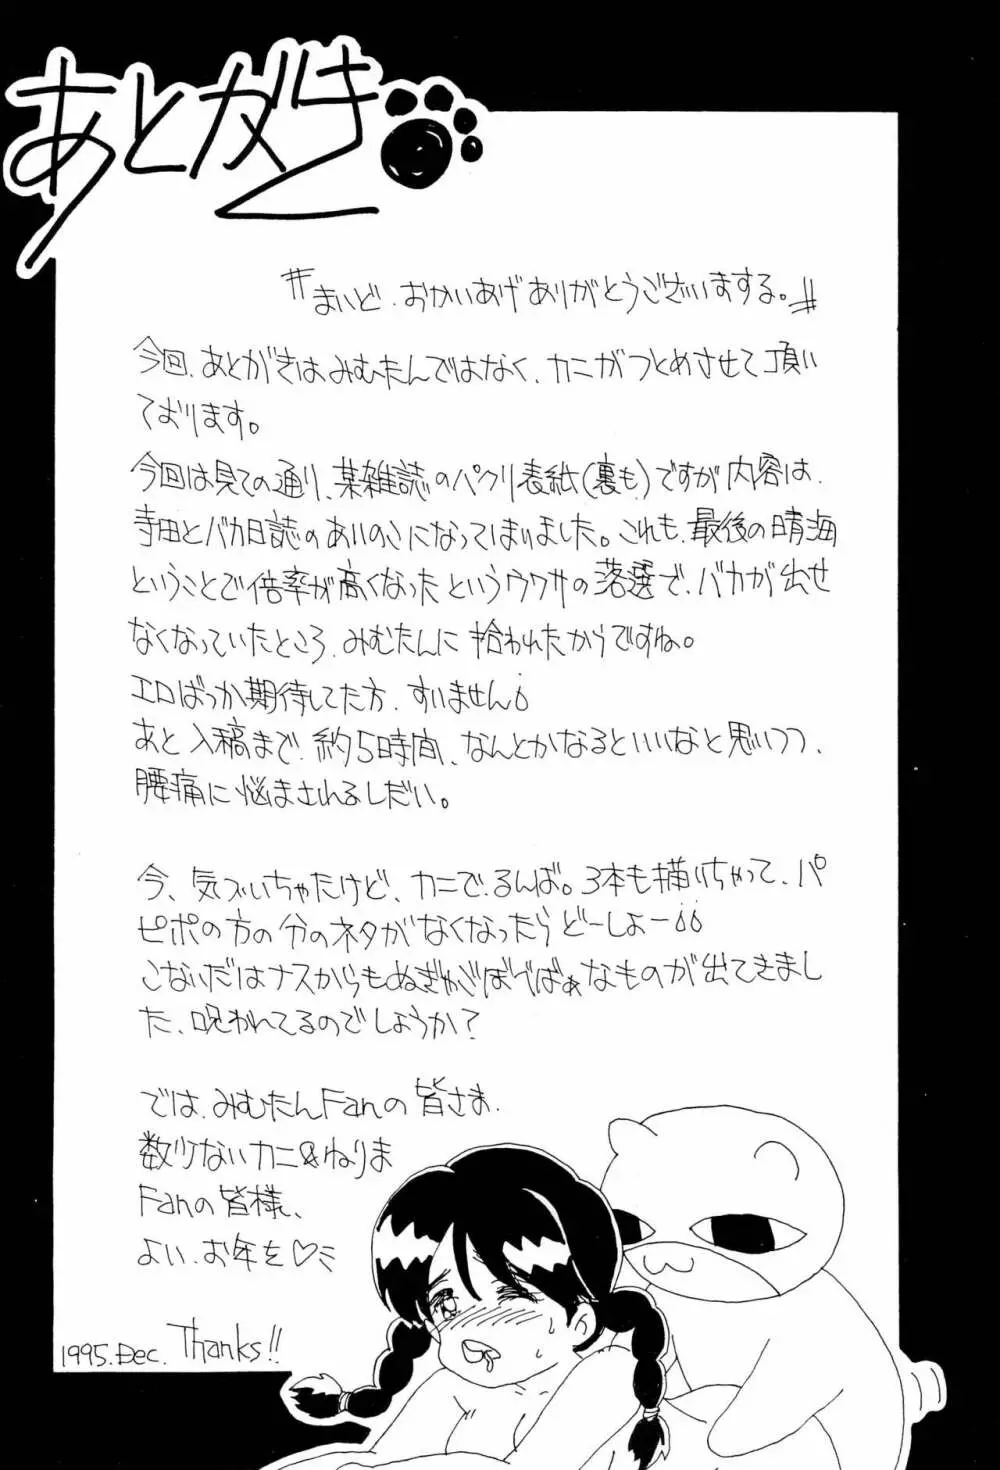 あとがき
〝まいど、おかいあげありがとうございまする。〟
今回、あとがきは、みむたんではなく、カニがつとめさせて頂い
ております。
今回は見ての通り、某雑誌のパクリ表紙(裏も)ですが内容は、
寺田とバカ日誌のあいのこになってしまいました。これも、最後の晴海
ということで倍率が高くなったというウワサの落選で、バカが出せ
なくなっていたところ、みむたんに拾われたからですね。
エロばっか期待してた方、すいません
あと入稿まで、約5時間、なんとかなるといいなと思いつつ、
腰痛に悩まされるしだい。
今、気づいちゃたけど、カニで、るんば。3本も描いちゃって、パ
ピポの方の分のネタがなくなったらどーしよー
こないだはナスからもなものが出てきまし
た、呪われてるのでしょうか?
では、みむたんFanの皆さま、
数少ないカニ&ねりま
Fanの皆様、
よい、お年を♡ミ
1995.Dec. Thanks!!